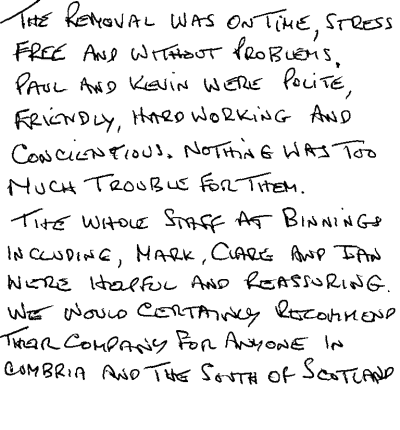 THE REMOVAL WAS ON TIME, STRESS
FREE AND WITHOUT PROBLEMS.
PAUL AND KEVIN WERE POLITE,
FRIENDLY, HARD WORKING AND
CONCIENTIOUS. NOTHING WAS TOO
MUCH TROUBLE FOR THEM.
THE WHOLE STAFF AT BINNINGS
INCLUDING, MARK, CLARE AND IAN
WERE HELPFUL AND REASSURING.
WE WOULD CERTAINLY RECOMMEND
THEIR COMPANY FOR ANYONE IN
CUMBRIA AND THE SOUTH OF SCOTLAND